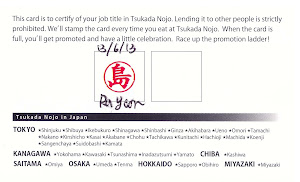 This card is to certify of your job title in Tsukada Nojo. Lending it to other people is strictly
prohibited. We'll stamp the card every time you eat at Tsukada Nojo. When the card is
full, you'll get promoted and have a little celebration. Race up the promotion ladder!
13/6/13
島
Tsukada Nojo in Japan
TOKYO •Shinjuku •Shibuya •Ikebukuro •Shinagawa •Shinbashi •Ginza •Akihabara •Ueno •Omori •Tamachi
•Nakano •Kinshicho •Kasai •Akabane •Chofu •Tachikawa •Kunitachi •Hachioji •Machida •Koenji
•Sangenchaya •Suidobashi •Kamata
KANAGAWA •Yokohama •Kawasaki •Tsunashima •Inadazutsumi •Yamato CHIBA •Kashiwa
SAITAMA •Omiya OSAKA •Umeda •Tenma HOKKAIDO •Sapporo •Obihiro MIYAZAKI •Miyazaki